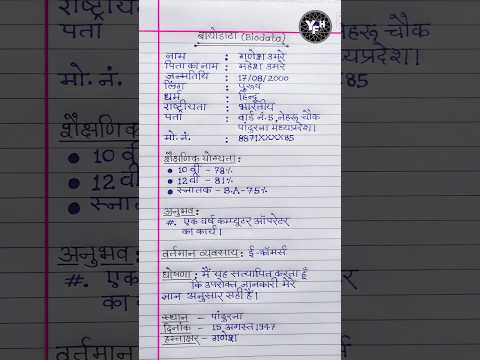 YFH
बायोडाटा (Biodata)
नाम : गणेश उमरे
पिता का नाम : महेश उमरे
जन्मतिथि : 17/08/2000
लिंग : पुरुष
धर्म : हिन्दू
राष्ट्रीयता : भारतीय
पता : वार्ड नं. 5, नेहरू चौक
पांढुरना मध्यप्रदेश।
मो. नं. : 8871XXXX85
शैक्षणिक योग्यता :
• 10 वीं – 78%
• 12 वीं – 81%
• स्नातक – B.A – 75%
अनुभव :
#. एक वर्ष कम्प्यूटर ऑपरेटर
का कार्य।
वर्तमान व्यवसाय : ई-कॉमर्स
घोषणा : मैं यह सत्यापित करता हूँ
कि उपरोक्त जानकारी मेरे
ज्ञान अनुसार सही है।
स्थान – पांढुरना
दिनांक – 15 अगस्त 1947
हस्ताक्षर – गणेश
राष्ट्रीय
पता
मो. नं.
शैक्षणिक
• 10 वीं
• 12 वीं
• स्नात
अनुभव :
#. एक
का क
नेहरू चौक
मध्यप्रदेश।
85
ऑपरेटर